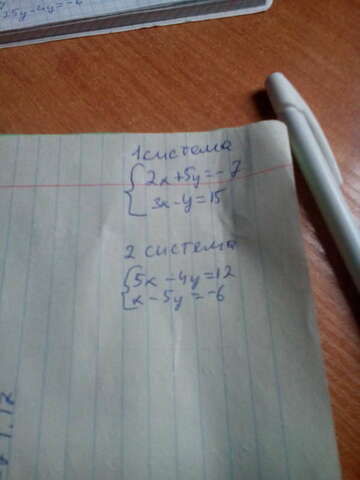 25y-4y=-6
1 система
2x+5y=-7
3x-y=15
2 система
5x-4y=12
x-5y=-6